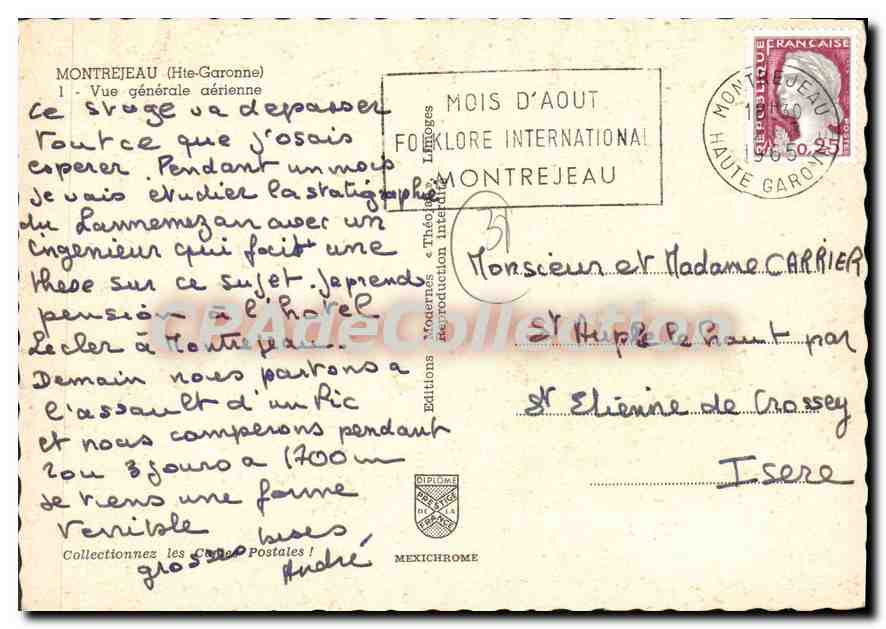 MONTREJEAU (Hte-Garonne)
1 - Vue générale aérienne
Ce stage va depasser
tout ce que j'osais
esperer. Pendant un mois
je vais etudier la statigraphie
du Lannemezan avec un
ingenieur qui fait une
these sur ce sujet. je prends
pension à l'hotel
Lecler à Montrejeau.
Demain nous partons a
l'assault d'un Pic
et nous camperons pendant
2 ou 3 jours a 1700 m
je tiens une forme
terrible
grosses bises
André
Collectionnez les Cartes Postales !
Editions Modernes « Théojac », Limoges
Reproduction interdite
MOIS D'AOUT
FOLKLORE INTERNATIONAL
MONTREJEAU
MONTREJEAU
1965
HAUTE GARONNE
REPUBLIQUE
FRANCAISE
POSTES
0,25
Monsieur et Madame CARRIER
St Aupre le haut par
St Etienne de Crossey
Isere
DIPLÔME
PRESTIGE
DE LA
FRANCE
MEXICHROME
CPAdeCollection